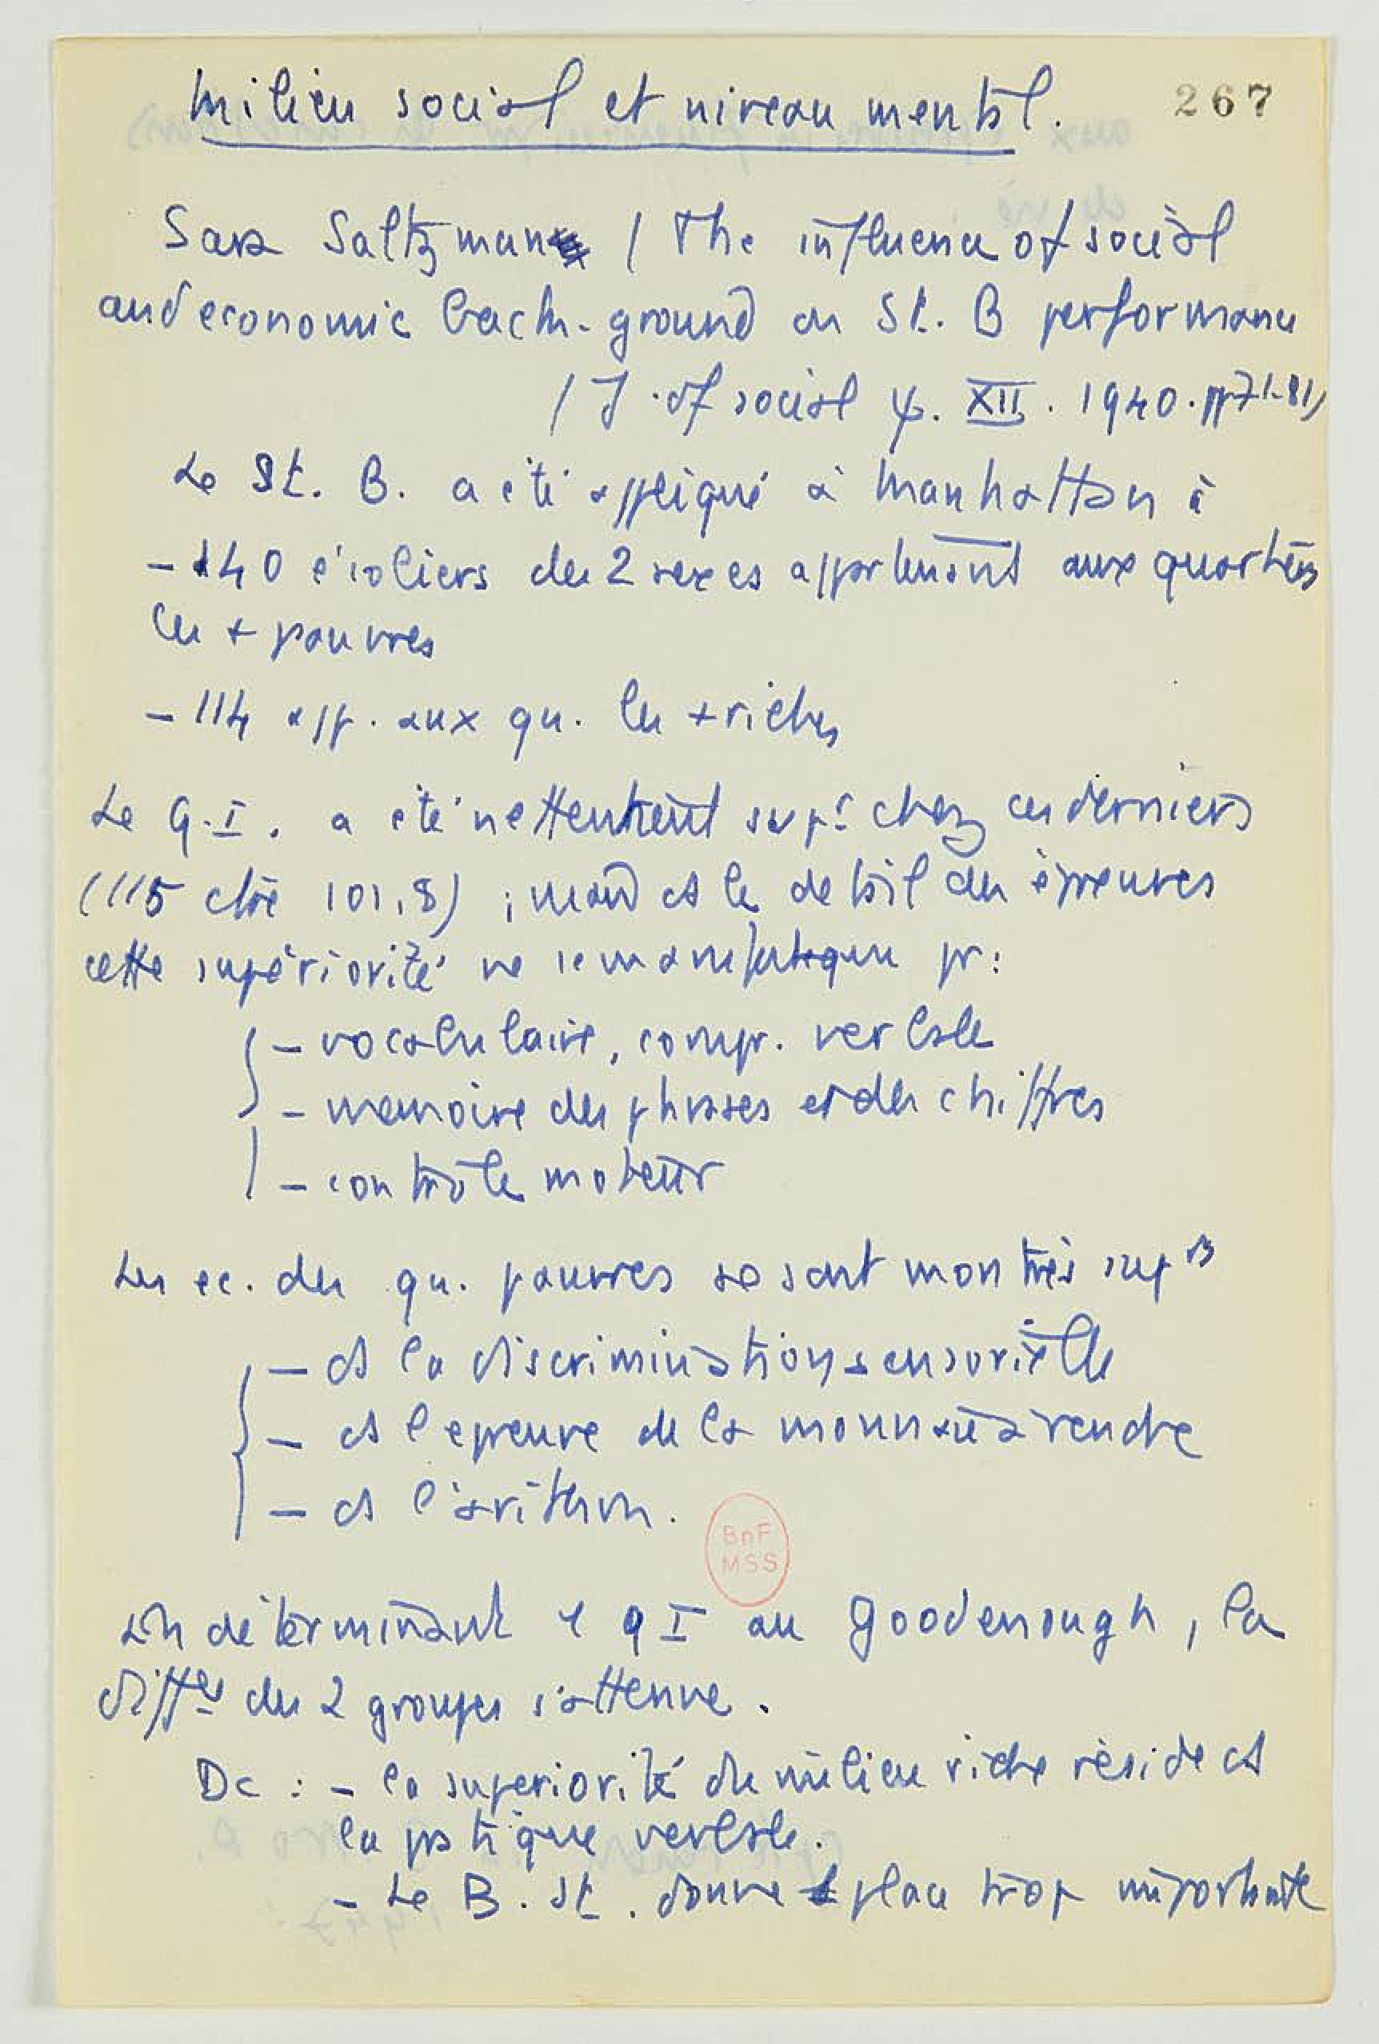 267
Milieu social et niveau mental.
Sara Saltzman / The influence of social
and economic back-ground on St. B performance
/ J. of social ψ. XII. 1940. pp 71-81)
Le St. B. a été appliqué à Manhattan à
- 140 écoliers des 2 sexes appartenant aux quartiers
les + pauvres
- 114 app. aux qu. les + riches
Le Q.I. a été nettement supr chez ces derniers
(115 ctre 101,8) ; mais ds le détail des épreuves
cette supériorité ne se manifeste que pr :
- vocabulaire, compr. verbale
- mémoire des phrases et des chiffres
- contrôle moteur
Les ec. des qu. pauvres se sont montrés suprs
- ds la discrimination sensorielle
- ds l'épreuve de la monnaie à rendre
- ds l'arithm.
BnF
MSS
En déterminant le QI au Goodenough, la
diffce des 2 groupes s'atténue.
Dc : - la supériorité du milieu riche réside ds
la pratique verbale.
- Le B. St. donne place trop importante